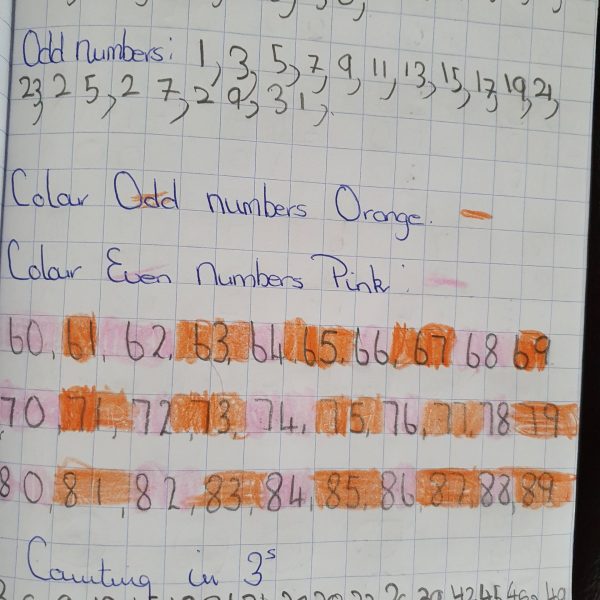 Odd numbers: 1, 3, 5, 7, 9, 11, 13, 15, 17, 19, 21,
23, 25, 27, 29, 31,
Colour Odd numbers Orange.
Colour Even numbers Pink:
60, 61, 62, 63, 64, 65, 66, 67 68 69
70, 71, 72, 73, 74, 75, 76, 77, 78 79
80, 81, 82, 83, 84, 85, 86, 87, 88, 89
Counting in 3s